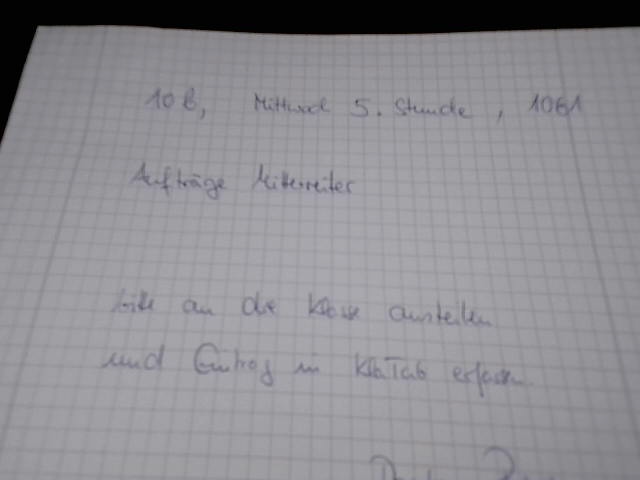 10 b, Mittwoch 5. Stunde, 1061
Aufträge Mitterreiter
bitte an die Klasse austeilen
und Eintrag in KlaTab erfassen